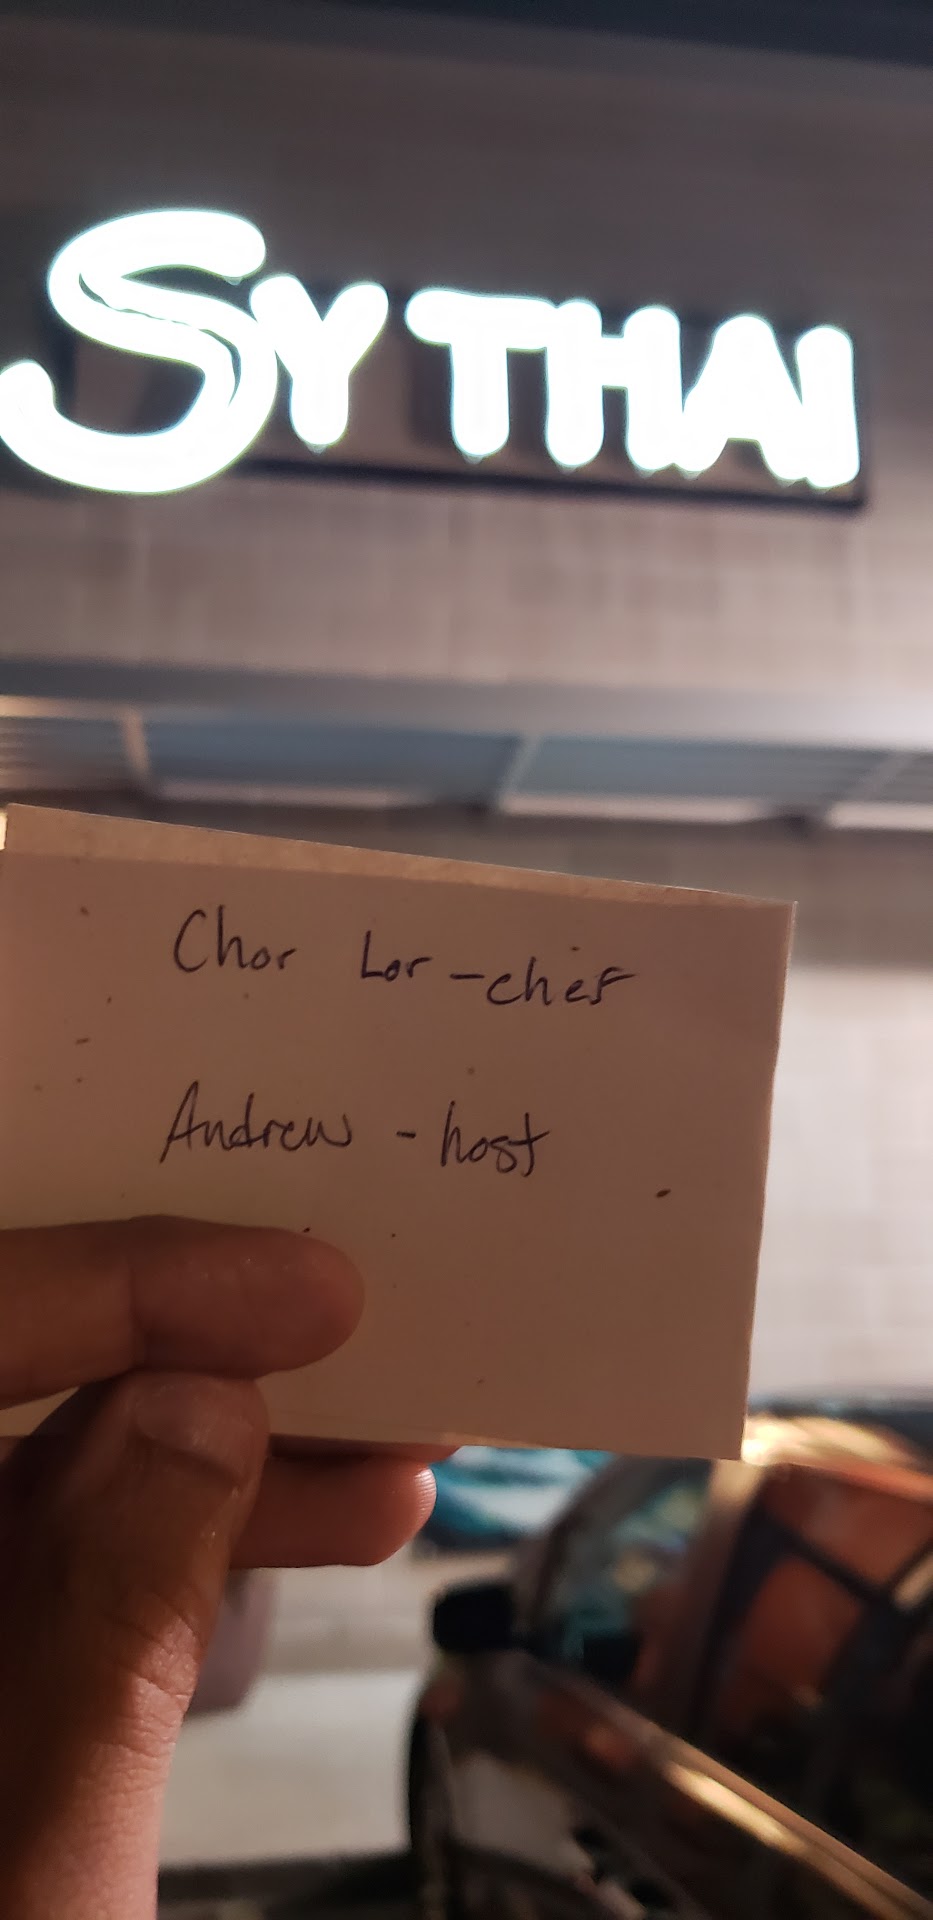 SY THAI
Chor Lor - chef
Andrew - host